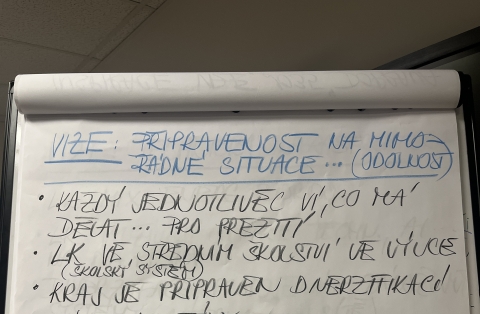 VIZE: PŘIPRAVENOST NA MIMO-
ŘÁDNÉ SITUACE ... (ODOLNOST)
• KAŽDÝ JEDNOTLIVEC VÍ, CO MÁ
DĚLAT ... PRO PŘEŽITÍ
• LK VE STŘEDNÍM ŠKOLSTVÍ VE VÝUCE
(ŠKOLSKÝ SYSTÉM)
• KRAJ JE PŘIPRAVEN